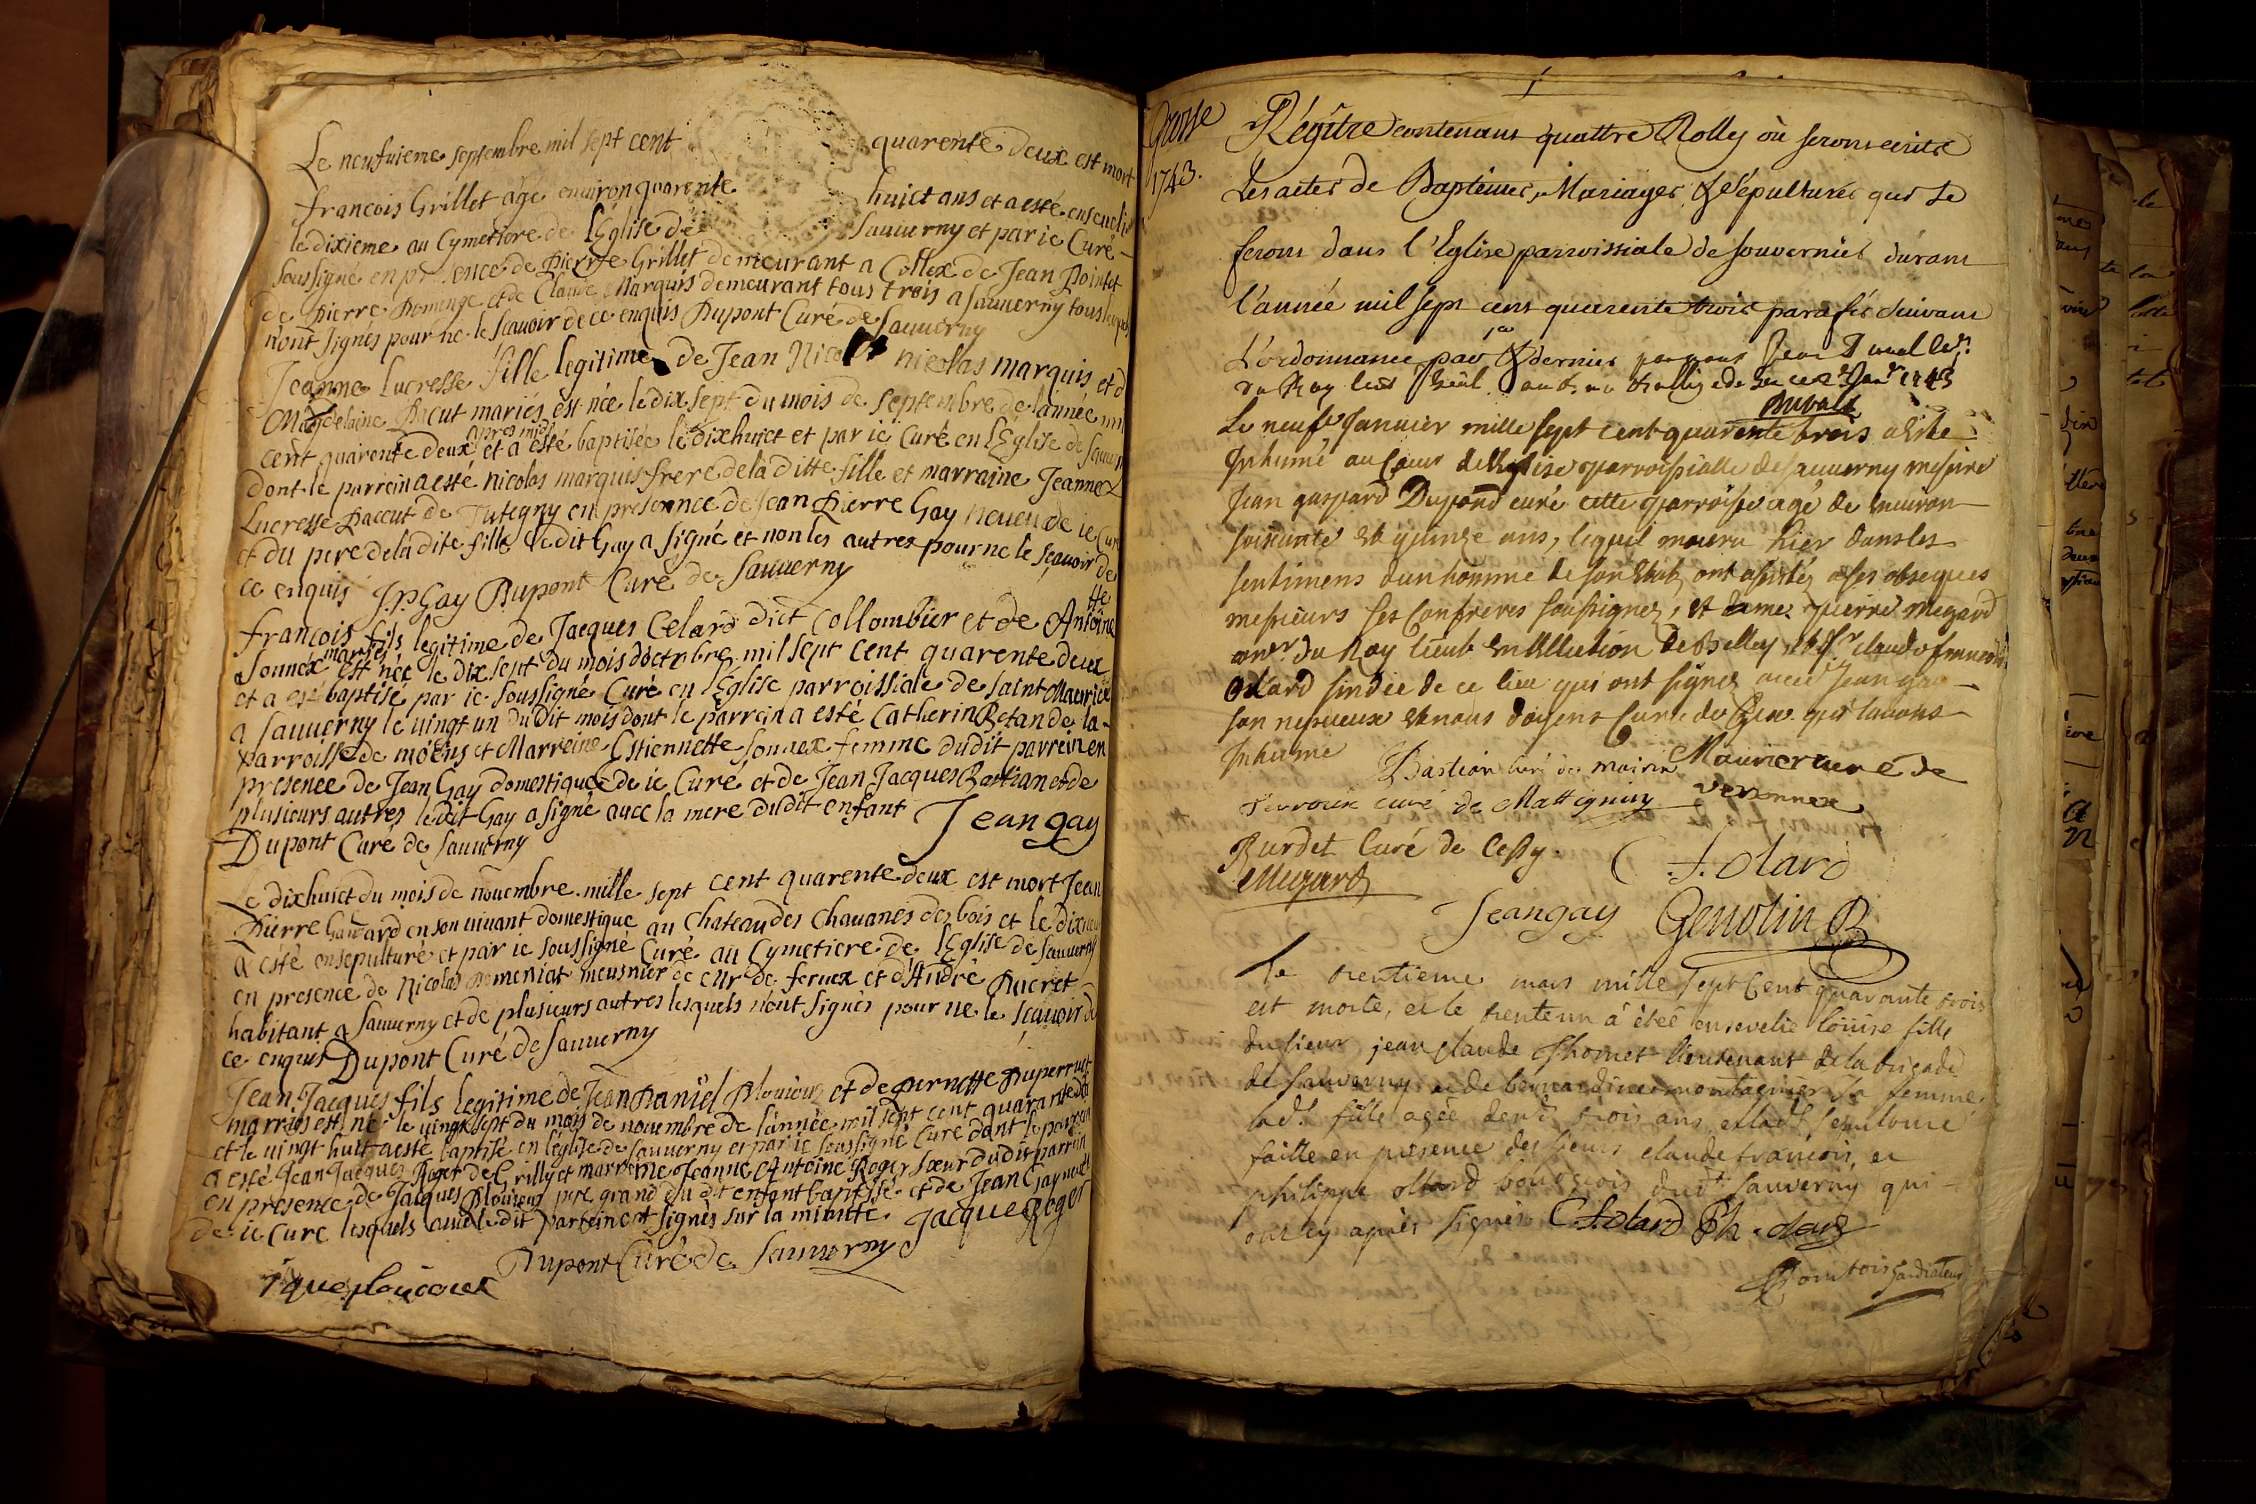 Le neufuieme septembre mil sept cent quarente deux est mort
francois Grillet agé environ quarente huict ans et a esté enseueli
le dixieme au Cymettere de l'Eglise de Sauuerny et par ie Curé
soussigné en presence de Pierre Grillet demeurant a Collex de Jean Pointet
de Pierre Domenge et de Claude Marquis demeurant tous trois a sauuerny tous lesquels
n'ont signés pour ne le scauoir de ce enquis Dupont Curé de sauuerny
Jeanne Lucresse fille legitime de Jean nicolas marquis et d
Magdelaine Ducut mariés est née le dix sept du mois de septembre de l'année mil
apres midi
cent quarente deux et a esté baptisée le dixhuict et par ie Curé en l'Eglise de sauuerny
dont le parrein a esté nicolas marquis frere de la ditte fille et marraine Jeanne
Lucresse Daccut de Tutegny en presence de Jean Pierre Gay neueu de ie Curé
et du pere de la dite fille ledit Gay a signé et non les autres pour ne le sçauoir de
ce enquis J.P. Gay Dupont Curé de Sauuerny
francois fils legitime de Jacques Celard dict Collombier et de Antoine
sonnex mariés est née le dix sept du mois doctobre mil sept cent quarente deux
et a esé baptisé par ie soussigné Curé en l'Eglise parroissiale de saint Maurice
a sauuerny le uingt un dudit mois dont le parrein a esté Catherin Betan de la
parroisse de moëns et Marreine Estiennette sonnex femme dudit parrein en
presence de Jean Gay domestique de ie Curé et de Jean Jacques Bastian et de
plusieurs autres ledit Gay a signé auec la mere dudit enfant Jean gay
Dupont Curé de sauuerny
Le dixhuict du mois de nouembre mille sept cent quarente deux est mort Jean
Pierre en son uiuant domestique au Chateau des Chauanes des bois et le dixneu
a esté ensepulturé et par ie soussigné Curé au Cymetiere de l'Eglise de sauuerny
en presence de Nicolas Domeniat meusnier de Mr de fernex et d'André Ducret
habitant a sauuerny et de plusieurs autres lesquels n'ont signés pour ne le scauoir de
ce enquis Dupont Curé de Sauuerny
Jean Jacques fils legitime de Jean Daniel Plouïoux et de purnette Duperrut
marriés est né le uingt sept du mois de nouembre de l'année mil sept cent quarante deux
et le uingt huit a esté baptisé en l'église de sauuerny et par ie soussigné Curé dont le parrein
a esté Jean Jacques Roget de Grilly et marreine Jeanne Antoine Roger sœur dudit parrein
en presence de Jacques Plouïoux pere grand du dit enfant baptisé et de Jean Gay neueu
de ie Curé lesquels auec ledit parrein ont signés sur la minute Jacque Roger
Dupont Curé de Sauuerny
Grosse
1743.
Régître contenant quattre Rolles où seront écrits
Les actes de Baptêmes, Mariages & sépultures qui se
feront dans l'Eglise parroissiale de souvernier durant
l'année mil sept cens quarente trois parafés suivant
L'ordonnance par & dernier par nous
du Roy 1743
Duval
Le neuf Januier mille sept cent quarente trois a esté
Inhumé au Cœur de l'Eglise parroissialle de sauuerny messire
Jean gaspard Dupond curé cette parroisse agé de enuiron
soixante et quinze ans, lequel mouru hier dans les
sentimens d'un homme de son Etat, ont assistés a ses obseques
messieurs ses Confreres soussignez, et pierre megard
du Roy lieut en l'Election de Belley et Sr claude francois
Olard sindic de ce lieu qui ont signez auec Jean gay
son nepueux et nous doyens Curé de Gex qui l'auons
Inhumé Bastian curé de moirin Maurier curé de
Perroux curé de Mattigniny Versonnex
Burdet Curé de Cessy. C. f. olard
Megard
Jean gay Genolin
Le trentieme mars mille sept cent quarante trois
est morte, et le trentun à étéé enseuelie loüise fille
du sieur jean claude thomet lieutenant de la brigade
de sauuerny et de bernardine montagnier sa femme
lad. fille agée denv. trois ans et lad. sepulture
faitte en presence des sieurs claude francois, et
philippe ollard bourgeois dud. sauuerny qui
ont cy après signés C. f. olard Ph. olard